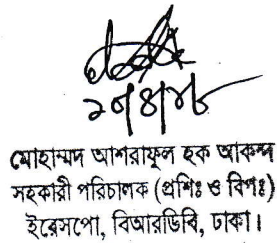 মোহাম্মদ আশরাফুল হক আকন্দ
সহকারী পরিচালক (প্রশিঃ ও বিপঃ)
ইরেসপো, বিআরডিবি, ঢাকা।